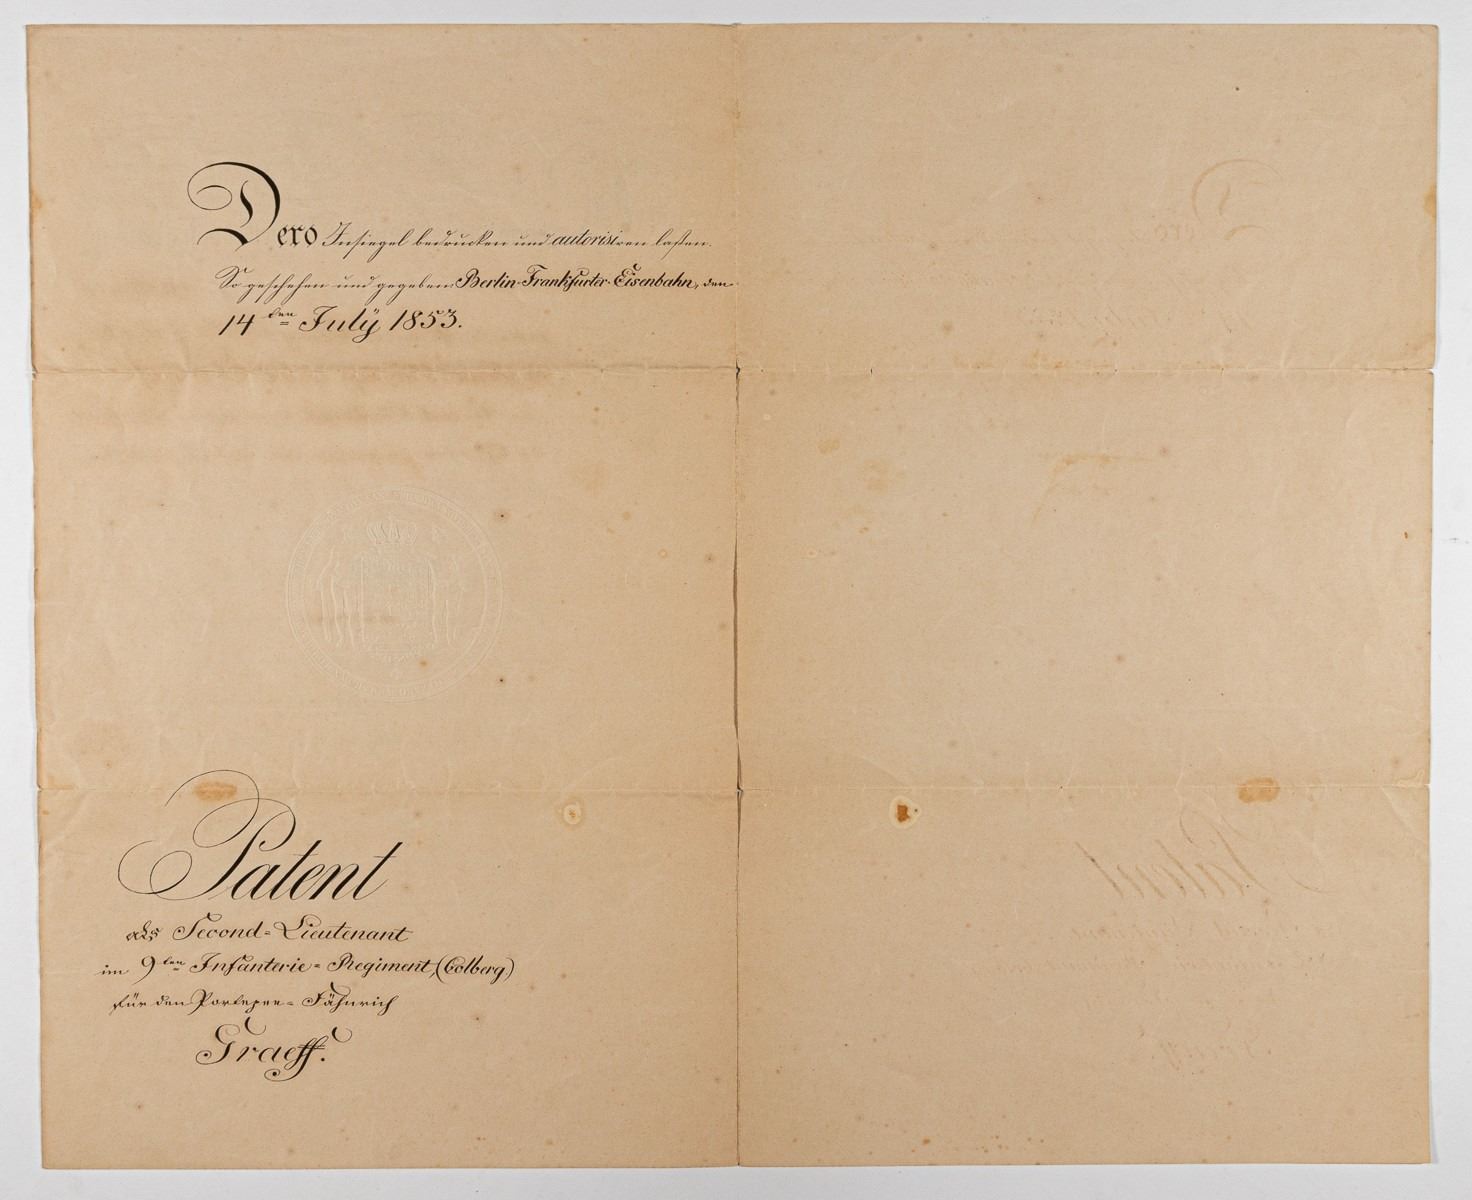 Dero Insiegel bedrucken und autorisiren laßen.
So geschehen und gegeben Berlin-Frankfurter-Eisenbahn, den
14ten Julÿ 1853.
Patent
als Second-Lieutenant
im 9ten Infanterie-Regiment, (Colberg)
für den Portepee-Fähnrich
Graeff.